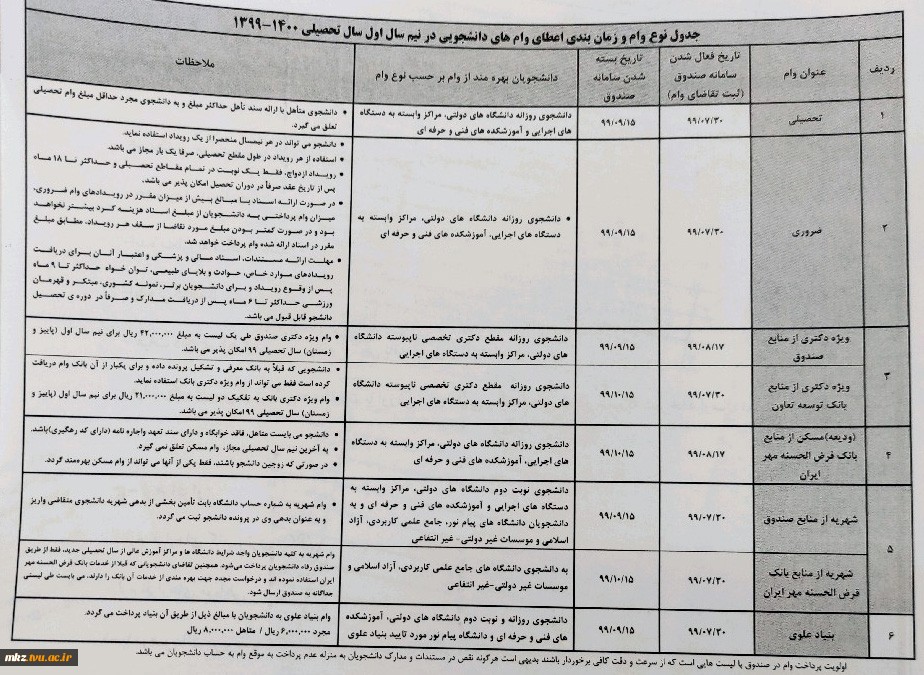 جدول نوع وام و زمان بندی اعطای وام های دانشجویی در نیم سال اول سال تحصیلی ۱۴۰۰-۱۳۹۹
ردیف
عنوان وام
تاریخ فعال شدن
سامانه صندوق
(ثبت تقاضای وام)
تاریخ بسته
شدن سامانه
صندوق
دانشجویان بهره مند از وام بر حسب نوع وام
ملاحظات
۱
تحصیلی
۹۹/۰۷/۳۰
۹۹/۰۹/۱۵
دانشجوی روزانه دانشگاه های دولتی، مراکز وابسته به دستگاه
های اجرایی و آموزشکده های فنی و حرفه ای
• دانشجوی متأهل با ارائه سند تأهل حداکثر مبلغ و به دانشجوی مجرد حداقل مبلغ وام تحصیلی
تعلق می گیرد.
۲
ضروری
۹۹/۰۷/۳۰
۹۹/۰۹/۱۵
• دانشجوی روزانه دانشگاه های دولتی، مراکز وابسته به
دستگاه های اجرایی، آموزشکده های فنی و حرفه ای
• دانشجو می تواند در هر نیمسال منحصرا از یک رویداد استفاده نماید.
• استفاده از هر رویداد در طول مقطع تحصیلی، صرفا یک بار مجاز می باشد.
• رویداد ازدواج، فقط یک نوبت در تمام مقاطع تحصیلی و حداکثر تا ۱۸ ماه
پس از تاریخ عقد صرفاً در دوران تحصیل امکان پذیر می باشد.
• در صورت ارائه اسناد با مبالغ بیش از میزان مقرر در رویدادهای وام ضروری،
میزان وام پرداختی به دانشجویان از مبلغ اسناد هزینه کرد بیشتر نخواهد
بود و در صورت کمتر بودن مبلغ مورد تقاضا از سقف هر رویداد، مطابق مبلغ
مقرر در اسناد ارائه شده وام پرداخت خواهد شد.
• مهلت ارائه مستندات، اسناد مالی و پزشکی و اعتبار آنان برای دریافت
رویدادهای موارد خاص، حوادث و بلایای طبیعی، توان خواه حداکثر تا ۹ ماه
پس از وقوع رویداد و برای دانشجویان برتر، نمونه کشوری، مبتکر و قهرمان
ورزشی حداکثر تا ۶ ماه پس از دریافت مدارک و صرفاً در دوره ی تحصیل
دانشجو قابل قبول می باشد.
۳
ویژه دکتری از منابع
صندوق
۹۹/۰۸/۱۷
۹۹/۰۹/۱۵
دانشجوی روزانه مقطع دکتری تخصصی ناپیوسته دانشگاه
های دولتی، مراکز وابسته به دستگاه های اجرایی
• وام ویژه دکتری صندوق طی یک لیست به مبلغ ۴۲,۰۰۰,۰۰۰ ریال برای نیم سال اول (پاییز و
زمستان) سال تحصیلی ۹۹ امکان پذیر می باشد.
ویژه دکتری از منابع
بانک توسعه تعاون
۹۹/۰۷/۳۰
۹۹/۱۰/۱۵
دانشجوی روزانه مقطع دکتری تخصصی ناپیوسته دانشگاه
های دولتی، مراکز وابسته به دستگاه های اجرایی
• دانشجویی که قبلاً به بانک معرفی و تشکیل پرونده داده و برای یکبار از آن بانک وام دریافت
کرده است فقط می تواند از وام ویژه دکتری بانک استفاده نماید.
• وام ویژه دکتری بانک به تفکیک دو لیست به مبلغ ۲۱,۰۰۰,۰۰۰ ریال برای نیم سال اول (پاییز و
زمستان) سال تحصیلی ۹۹ امکان پذیر می باشد.
۴
(ودیعه)مسکن از منابع
بانک قرض الحسنه مهر
ایران
۹۹/۰۸/۱۷
۹۹/۱۰/۱۵
دانشجوی روزانه دانشگاه های دولتی، مراکز وابسته به دستگاه
های اجرایی، آموزشکده های فنی و حرفه ای
• دانشجو می بایست متاهل، فاقد خوابگاه و دارای سند تعهد واجاره نامه (دارای کد رهگیری)باشد.
• به آخرین نیم سال تحصیلی مجاز، وام مسکن تعلق نمی گیرد.
• در صورتی که زوجین دانشجو باشند، فقط یکی از آنها می تواند از وام مسکن بهره‌مند گردد.
۵
شهریه از منابع صندوق
۹۹/۰۷/۳۰
۹۹/۰۹/۱۵
دانشجوی نوبت دوم دانشگاه های دولتی، مراکز وابسته به
دستگاه های اجرایی و آموزشکده های فنی و حرفه ای و به
دانشجویان دانشگاه های پیام نور، جامع علمی کاربردی، آزاد
اسلامی و موسسات غیر دولتی - غیر انتفاعی
• وام شهریه به شماره حساب دانشگاه بابت تأمین بخشی از بدهی شهریه دانشجوی متقاضی واریز
و به عنوان بدهی وی در پرونده دانشجو ثبت می گردد.
شهریه از منابع بانک
قرض الحسنه مهر ایران
۹۹/۰۷/۳۰
۹۹/۱۰/۱۵
به دانشجوی دانشگاه های جامع علمی کاربردی، آزاد اسلامی و
موسسات غیر دولتی-غیر انتفاعی
وام شهریه به کلیه دانشجویان واجد شرایط دانشگاه ها و مراکز آموزش عالی از سال تحصیلی جدید، فقط از طریق
صندوق رفاه دانشجویان پرداخت می‌شود. همچنین تقاضای دانشجویانی که قبلا از خدمات بانک قرض الحسنه مهر
ایران استفاده نموده اند و درخواست مجدد جهت بهره مندی از خدمات آن بانک را دارند، می بایست طی لیستی
جداگانه به صندوق ارسال شود.
۶
بنیاد علوی
۹۹/۰۷/۳۰
۹۹/۰۹/۱۵
دانشجوی روزانه و نوبت دوم دانشگاه های دولتی، آموزشکده
های فنی و حرفه ای و دانشگاه پیام نور مورد تایید بنیاد علوی
• وام بنیاد علوی به دانشجویان با مبالغ ذیل از طریق آن بنیاد پرداخت می گردد.
مجرد ۶,۰۰۰,۰۰۰ ریال / متاهل ۸,۰۰۰,۰۰۰ ریال
اولویت پرداخت وام در صندوق با لیست هایی است که از سرعت و دقت کافی برخوردار باشند بدیهی است هرگونه نقص در مستندات و مدارک دانشجویان به منزله عدم پرداخت به موقع وام به حساب دانشجویان می باشد.
mkz.tvu.ac.ir